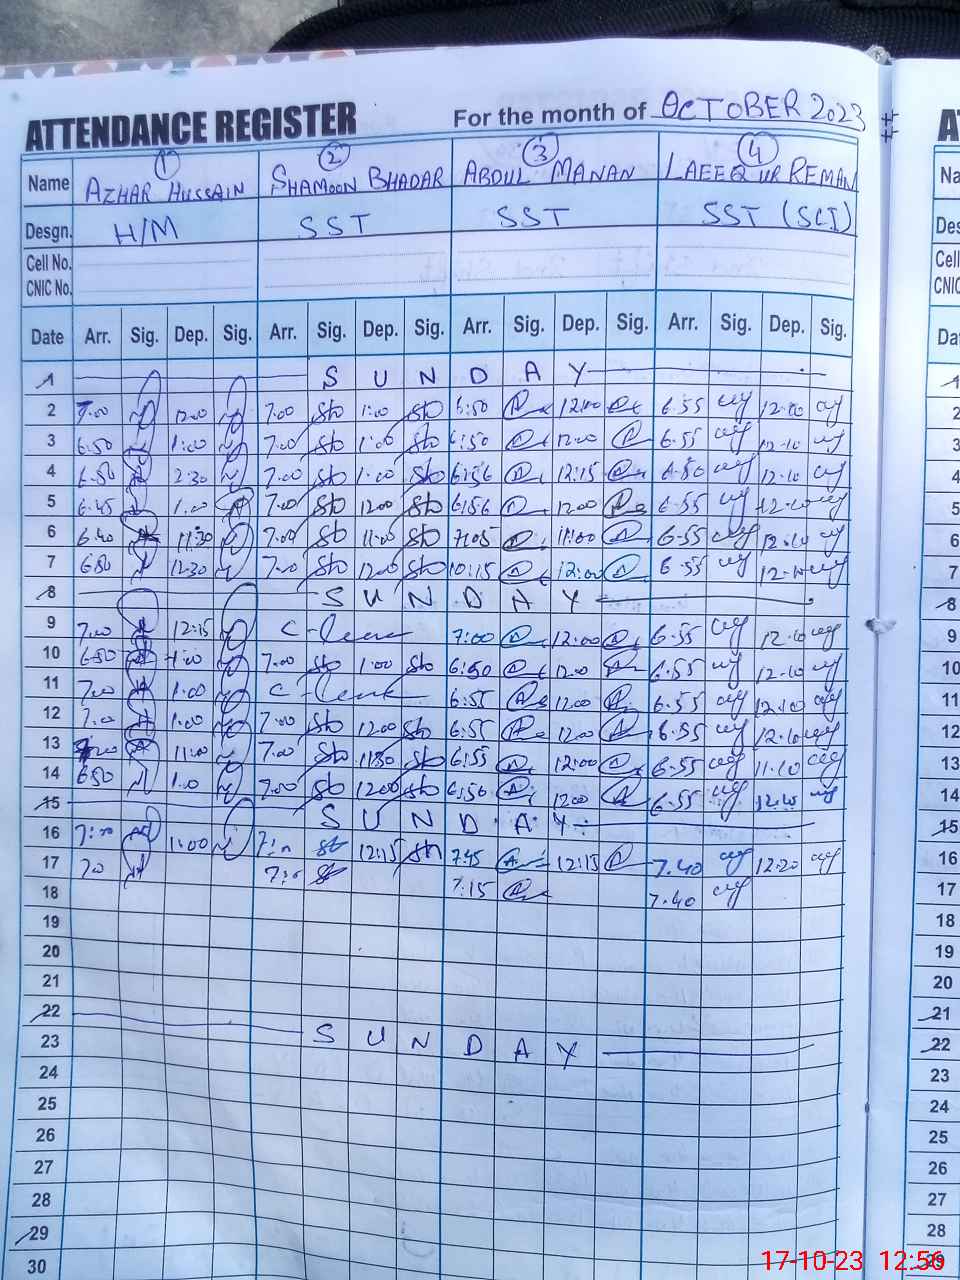 ATTENDANCE REGISTER For the month of OCTOBER 2023
1 2 3 4
Name AZHAR HUSSAIN SHAMOON BHADAR ABDUL MANAN LAEEQ UR REMAN
Desgn. H/M SST SST SST (SCI)
Cell No.
CNIC No.
Date Arr. Sig. Dep. Sig. Arr. Sig. Dep. Sig. Arr. Sig. Dep. Sig. Arr. Sig. Dep. Sig.
1 SUNDAY
2 7.00 12.00 7.00 1:00 6:50 12:00 6.55 12.10
3 6.50 1:00 7.00 1:00 6:50 12:00 6.55 12.10
4 6.50 2:30 7.00 1:00 6:56 12:15 6.50 12.10
5 6.45 1:00 7.00 12:00 6:56 12:00 6.55 12.10
6 6.40 11:30 7.00 11:00 7:05 11:00 6.55 12.10
7 6:50 12:30 7.00 12:00 10:15 12:00 6.55 12.10
8 SUNDAY
9 7.00 12:15 7:00 12:00 6.55 12.10
10 6:50 1:00 7.00 1:00 6:50 12:00 6.55 12.10
11 7.00 1:00 6:55 12:00 6.55 12.10
12 7.00 1:00 7:00 12:00 6:55 12:00 6.55 12.10
13 11:00 7.00 11:30 6:55 12:00 6.55 11.10
14 6:50 1:00 7:00 12:00 6:50 12:00 6.55 12.10
15 SUNDAY
16 7:00 1:00 12:15 7:45 12:15 7.40 12.20
17 7:15 7.40
18
19
20
21
22
23 SUNDAY
24
25
26
27
28
29
30
A
Na
Des
Cell
CNIC
Da
1
2
3
4
5
6
7
8
9
10
11
12
13
14
15
16
17
18
19
20
21
22
23
24
25
26
27
28
29
17-10-23 12:56